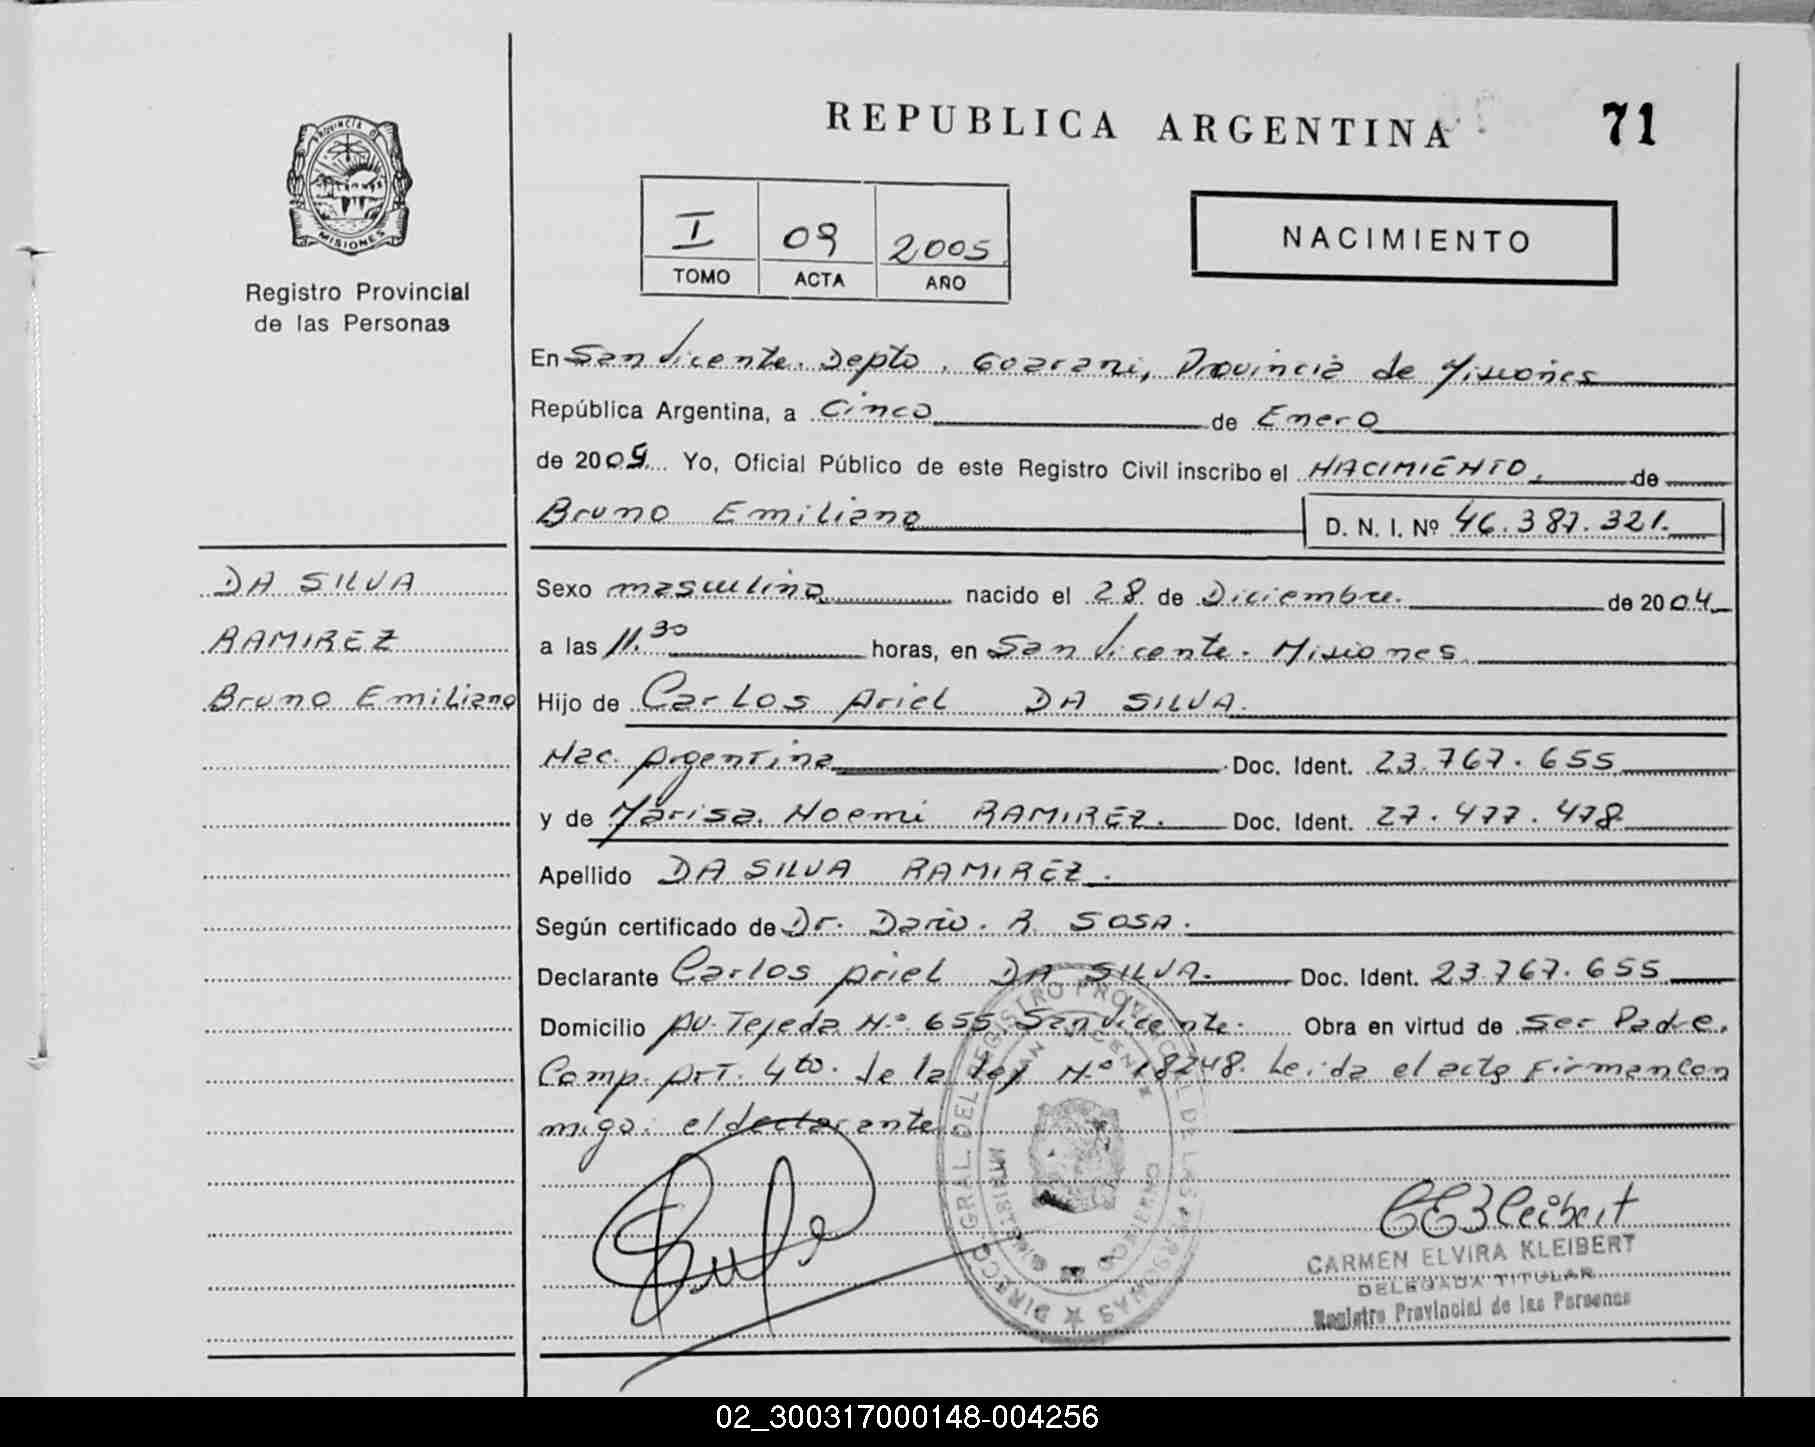 REPUBLICA ARGENTINA 71
PROVINCIA D
MISIONES
Registro Provincial
de las Personas
I 09 2005
TOMO ACTA AÑO
NACIMIENTO
En San Vicente. Depto. Guarani, Provincia de Misiones
República Argentina, a Cinco de Enero
de 2005 Yo, Oficial Público de este Registro Civil inscribo el NACIMIENTO, de
Bruno Emiliano D. N. I. Nº 46.387.321.
DA SILVA
RAMIREZ
Bruno Emiliano
Sexo masculino nacido el 28 de Diciembre. de 2004
a las 11.30 horas, en San Vicente. Misiones
Hijo de Carlos Ariel DA SILVA.
Nac. Argentina Doc. Ident. 23.767.655
y de Marisa Noemi RAMIREZ. Doc. Ident. 27.477.478
Apellido DA SILVA RAMIREZ.
Según certificado de Dr. Dario. R. SOSA.
Declarante Carlos Ariel DA SILVA. Doc. Ident. 23.767.655
Domicilio AV. Tejeda N.º 655 San Vicente. Obra en virtud de Ser Padre.
Comp. Art. 4to. de la ley N.º 18248. Leida el acta Firman Con
migo: el declarante
DIRECC. GRAL. DEL REGISTRO PROVINCIAL DE LAS PERSONAS
SAN VICENTE
MINISTERIO DE GOBIERNO
CEKleibert
CARMEN ELVIRA KLEIBERT
DELEGADA TITULAR
Registro Provincial de las Personas
02_300317000148-004256